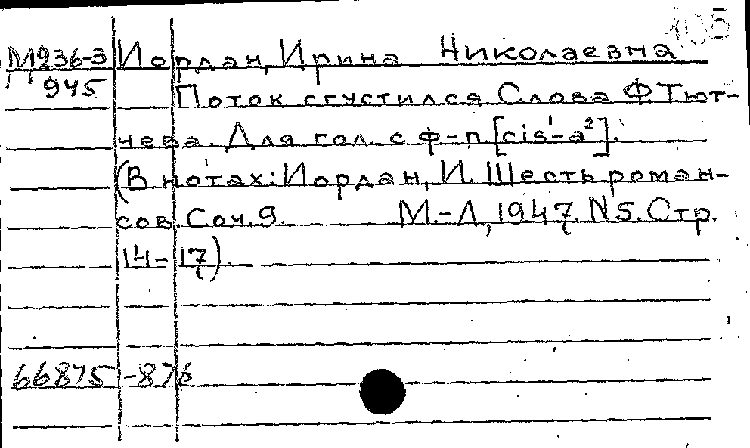 105
М236-3 Иордан, Ирина Николаевна
945 Поток сгустился. Слова Ф. Тют-
чева. Для гол. с ф-п. [cis¹-a²].
(В нотах: Иордан, И. Шесть роман-
сов. Соч. 9. М.-Л, 1947. N5. Стр.
14-17).
66875-876